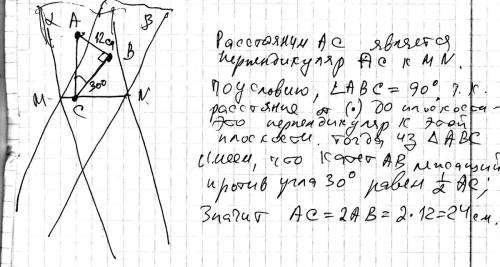 α
A
β
12см
B
30°
M
N
C
Расстоянии AC является
перпендикуляр AC к MN.
По условию, ∠ABC = 90°, т.к.
расстояние от (•) до плоскости
это перпендикуляр к этой
плоскости. Тогда из △ABC
имеем, что катет AB лежащий
против угла 30° равен 1/2 AC,
Значит AC = 2AB = 2·12 = 24 см.